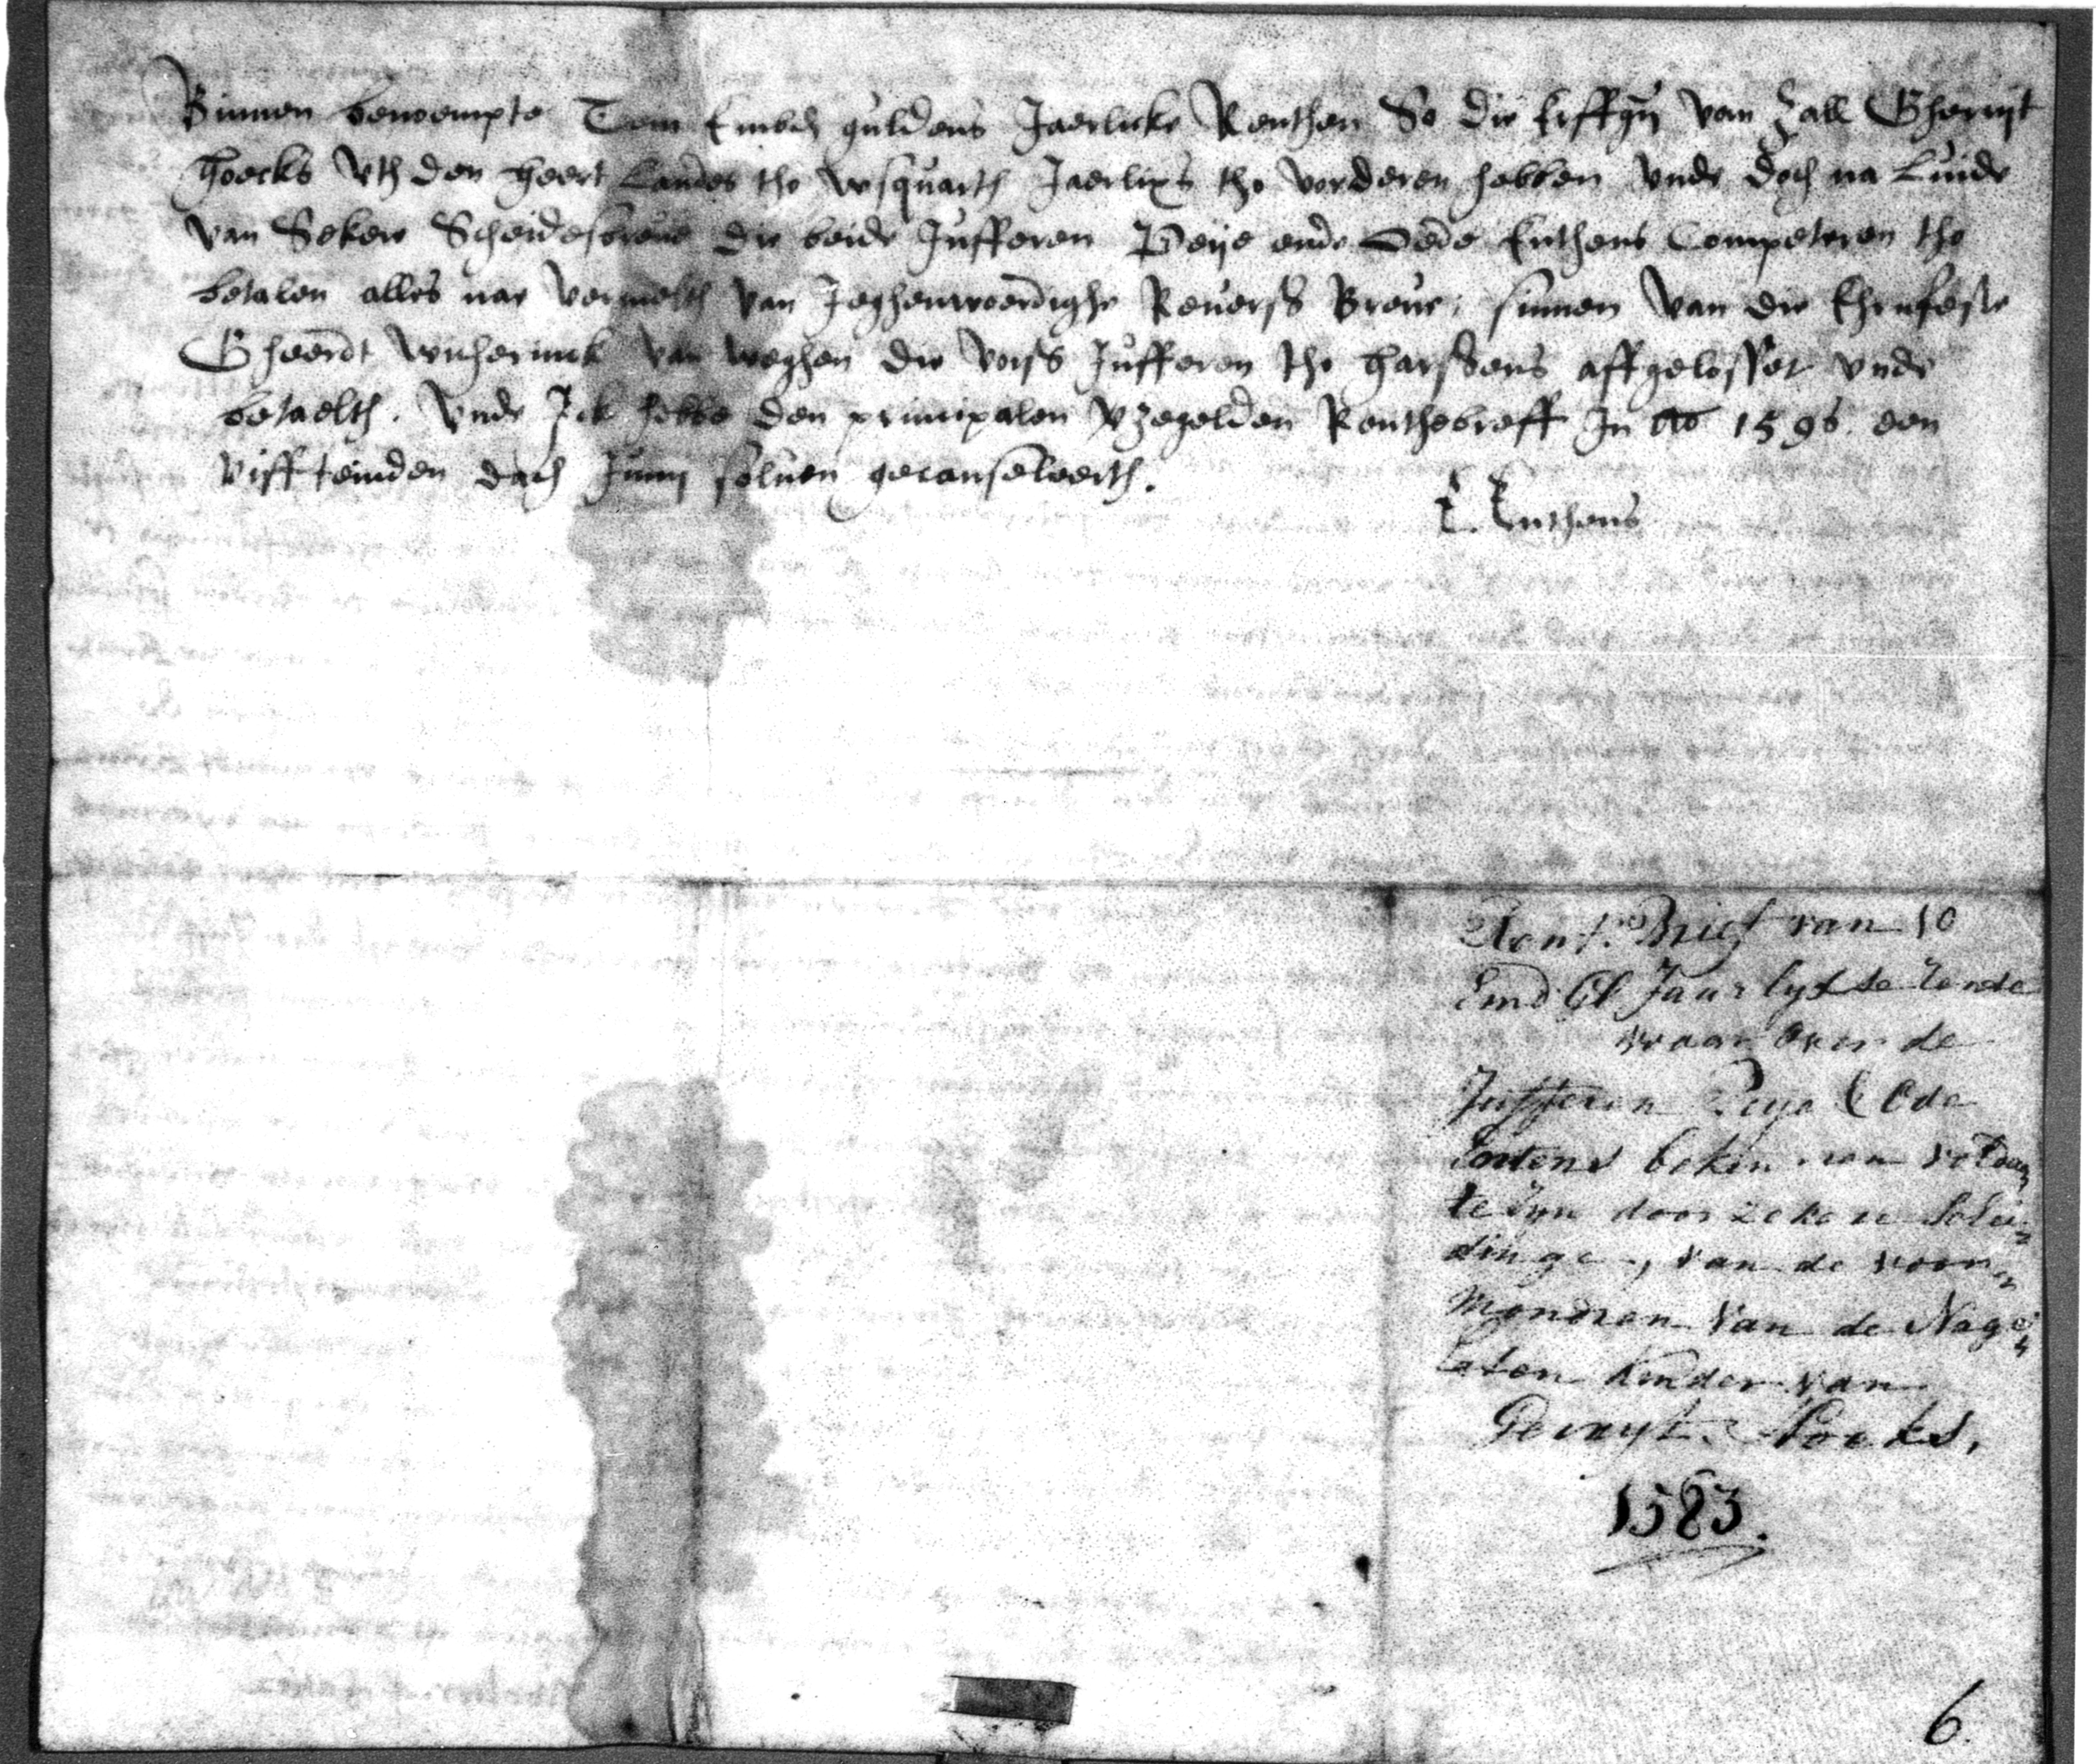 Binnen benoempte Tein Embd guldens Jaerlicke Renthen So die Erffgn van Zall Gheruyt
Hoecks vth den heert Landes tho vsquarth Jaerlixs tho vorderen hebben vnde doch na Luide
van Seker Scheidesbreue die beide Jufferen Peije ende Oede Enthens Competeren tho
betalen alles nae vermelth van Jeghenwoerdighe Reuerss Breue, sinnen van die Ehrnfeste
Gheerdt wicherinck van weghen die vorss Jufferen tho harssens affgelosset vnde
betaelth. Vnde Ick hebbe den principalen vzegelden Renthebreff In Ao 1596 den
vifften dach Junij soluen gecanseleerth.
E. Enthens
Rent. Brief van 10
Emd Gl Jaarlykse rente
waar over de
Jufferen Peye & Ode
Entens beken nen voldaan
te zyn door zekere Schei=
dinge, van de voor=
monden van de Nage=
laten kinder van
Geruyt Hoeks,
1583.
6.